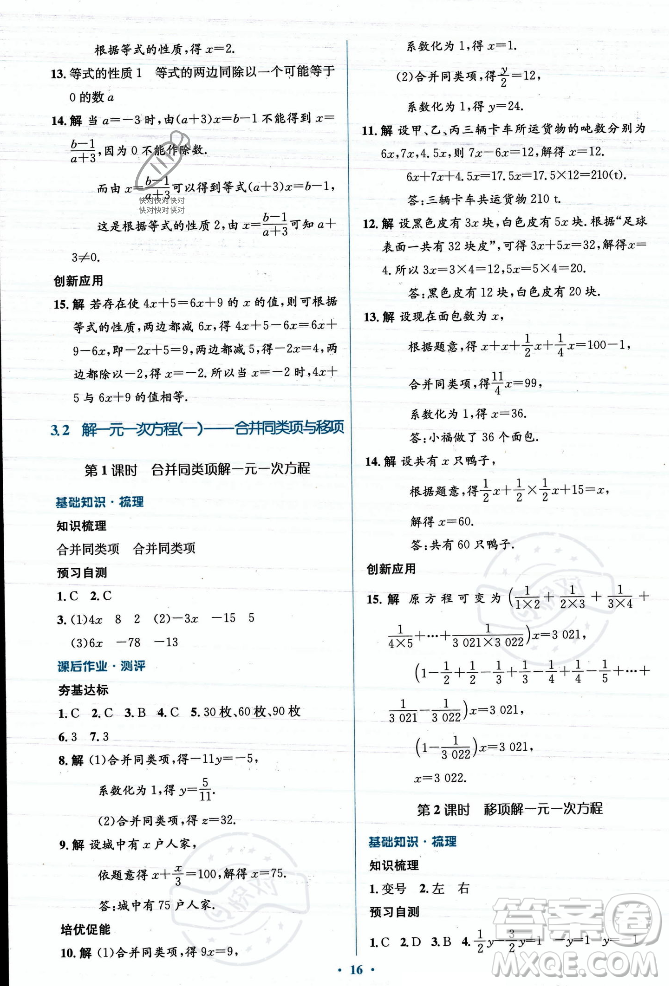 根据等式的性质,得 x=2.
13. 等式的性质 1　等式的两边同除以一个可能等于
0 的数 a
14. 解 当 a=-3 时,由 (a+3)x=b-1 不能得到 x=
(b-1)/(a+3),因为 0 不能作除数.
而由 x=(b-1)/(a+3) 可以得到等式 (a+3)x=b-1,
这是根据等式的性质 2,且由 x=(b-1)/(a+3) 可知 a+
3≠0.
创新应用
15. 解 若存在使 4x+5=6x+9 的 x 的值,则可根据
等式的性质,两边都减 6x+5,得 4x+5-6x-5=
9-6x+6x-5,即-2x=4,两边都除以-2,得 x=
-2.所以存在 x 的值,当 x=-2 时,4x+5 与
6x+9 的值相等.
3.2　解一元一次方程(一)——合并同类项与移项
第 1 课时　合并同类项解一元一次方程
基础知识·梳理
知识梳理
合并同类项　合并同类项
预习自测
1. C　2. C
3. (1)4x　8　2　(2)-3x　-15　5
(3)6x　-78　-13
课后作业·测评
夯基达标
1. C　2. C　3. B　4. C　5. 30 枚、60 枚、90 枚
6. 3　7. 3
8. 解 (1)合并同类项,得-11y=-5,
系数化为 1,得 y=5/11.
(2)合并同类项,得-4x=-9,
9. 解 设城中有 x 户人家,
依题意得 x+x/3=100,解得 x=75.
答:城中有 75 户人家.
培优促能
10. 解 (1)合并同类项,得 9x=9,
系数化为 1,得 x=1.
(2)合并同类项,得 y/2=12,
系数化为 1,得 y=24.
11. 解 设甲、乙、丙三辆卡车所运货物的吨数分别为
6x,7x,4.5x,则 6x+7x+4.5x=
6x+7x+4.5x=17.5x=17.5×12=210(t).
答:三辆卡车共运货物 210 t.
12. 解 设黑色皮有 3x 块,白色皮有 5x 块.根据“足球
表面一共有 32 块皮”,可得 3x+5x=32.解得 x=
4.所以 3x=3×4=12,5x=5×4=20.
答:黑色皮有 12 块,白色皮有 20 块.
13. 解 设现在面包数为 x,
根据题意,得 x+x+1/2x+1/4x=100-1,
合并同类项,得 11/4x=99,
系数化为 1,得 x=36.
答:小福做了 36 个面包.
14. 解 设共有 x 只鸭子,
根据题意,得 1/2x+1/4x+15=x,
解得 x=60.
答:共有 60 只鸭子.
创新应用
15. 解 原方程可变为 (1/(1×2)+1/(2×3)+1/(3×4)+
1/(4×5)+…+1/(3 021×3 022))x=3 021,
(1-1/2+1/2-1/3+1/3-1/4+1/4-1/5+…+
1/3 021-1/3 022)x=3 021,
(1-1/3 022)x=3 021,
解得 x=3 022.
第 2 课时　移项解一元一次方程
基础知识·梳理
知识梳理
1. 变号　2. 左　右
预习自测
1. C　2. C　3. C　4. 1/2y-3/2y　-y=1　-1
16
快对快对快对
快对快对快对
答案卷
MXQE.COM